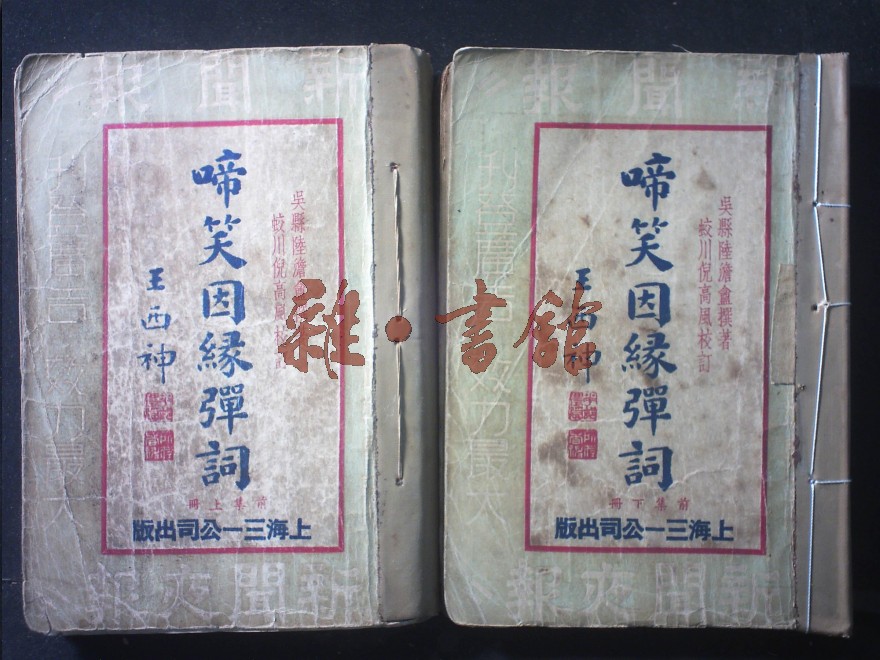 新聞報
吳縣陸澹盦
蛟川倪高風校訂
啼笑因緣彈詞
王西神
前集上冊
上海三一公司出版
新聞夜報
刊登廣告 效力最大
新聞報
吳縣陸澹盦撰著
蛟川倪高風校訂
啼笑因緣彈詞
王西神
前集下冊
上海三一公司出版
新聞夜報
刊登廣告 效力最大
雜·書館